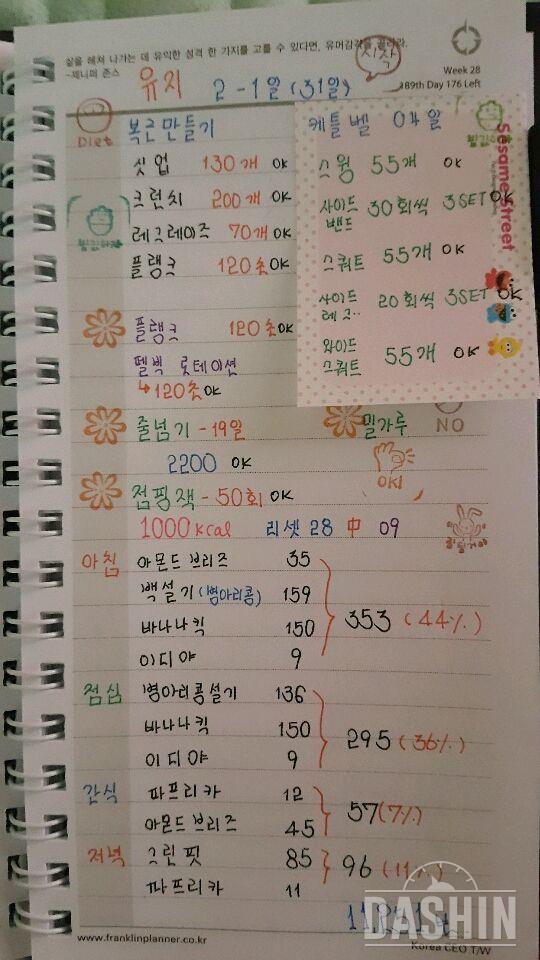 삶을 헤쳐 나가는 데 유익한 성격 한 가지를 고를 수 있다면, 유머감각을 골라라.
-제니퍼 존스
시작
Week 28
189th Day 176 Left
유지 2-1일(31일)
Diet
복근만들기
싯업 130개 OK
크런치 200개 OK
레그레이즈 70개 OK
플랭크 120초 OK
플랭크 120초 OK
펠빅 로테이션
↳120초 OK
줄넘기 - 19일
2200 OK
점핑잭 - 50회 OK
케틀벨 04일
스윙 55개 OK
사이드 밴드 30회씩 3SET OK
스쿼트 55개 OK
사이드 레그.. 20회씩 3SET OK
와이드 스쿼트 55개 OK
Sesame Street
밀가루 NO
OK!
1000 kcal 리셋 28 中 09
아침 아몬드 브리즈 35
백설기 (병아리콩) 159
바나나킥 150
이디야 9
353 (44%)
점심 병아리콩설기 136
바나나킥 150
이디야 9
295 (36%)
간식 파프리카 12
아몬드 브리즈 45
57 (7%)
저녁 그린 핏 85
파프리카 11
96 (11%)
www.franklinplanner.co.kr
Korea CEO T/W
DASHIN